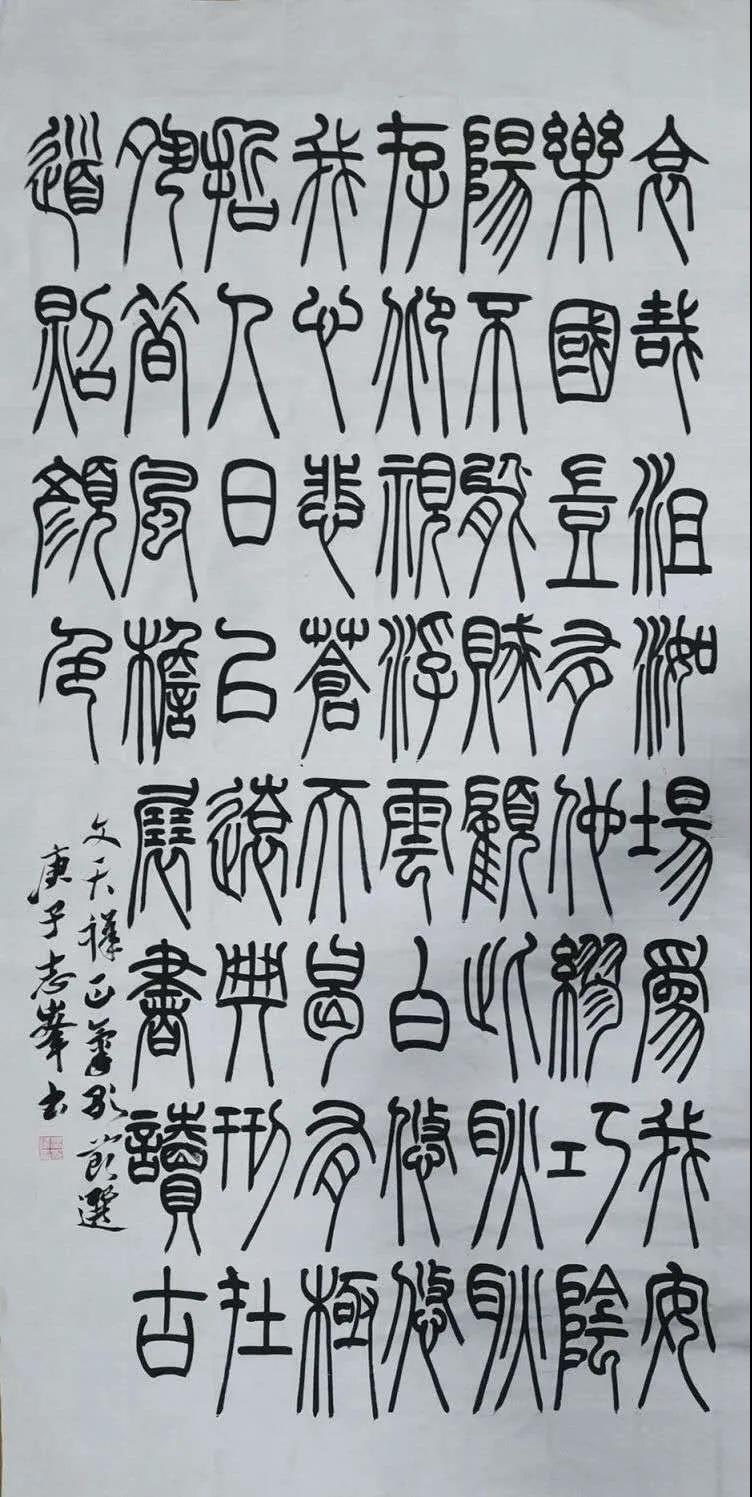 哀哉沮洳場為我安
樂國豈有他繆巧陰
陽不能賊顧此耿耿
存仰視浮雲白悠悠
我心悲蒼天曷有極
哲人日已遠典刑在
夙昔風檐展書讀古
道照顏色
文天祥正氣歌節選
庚子志峯书